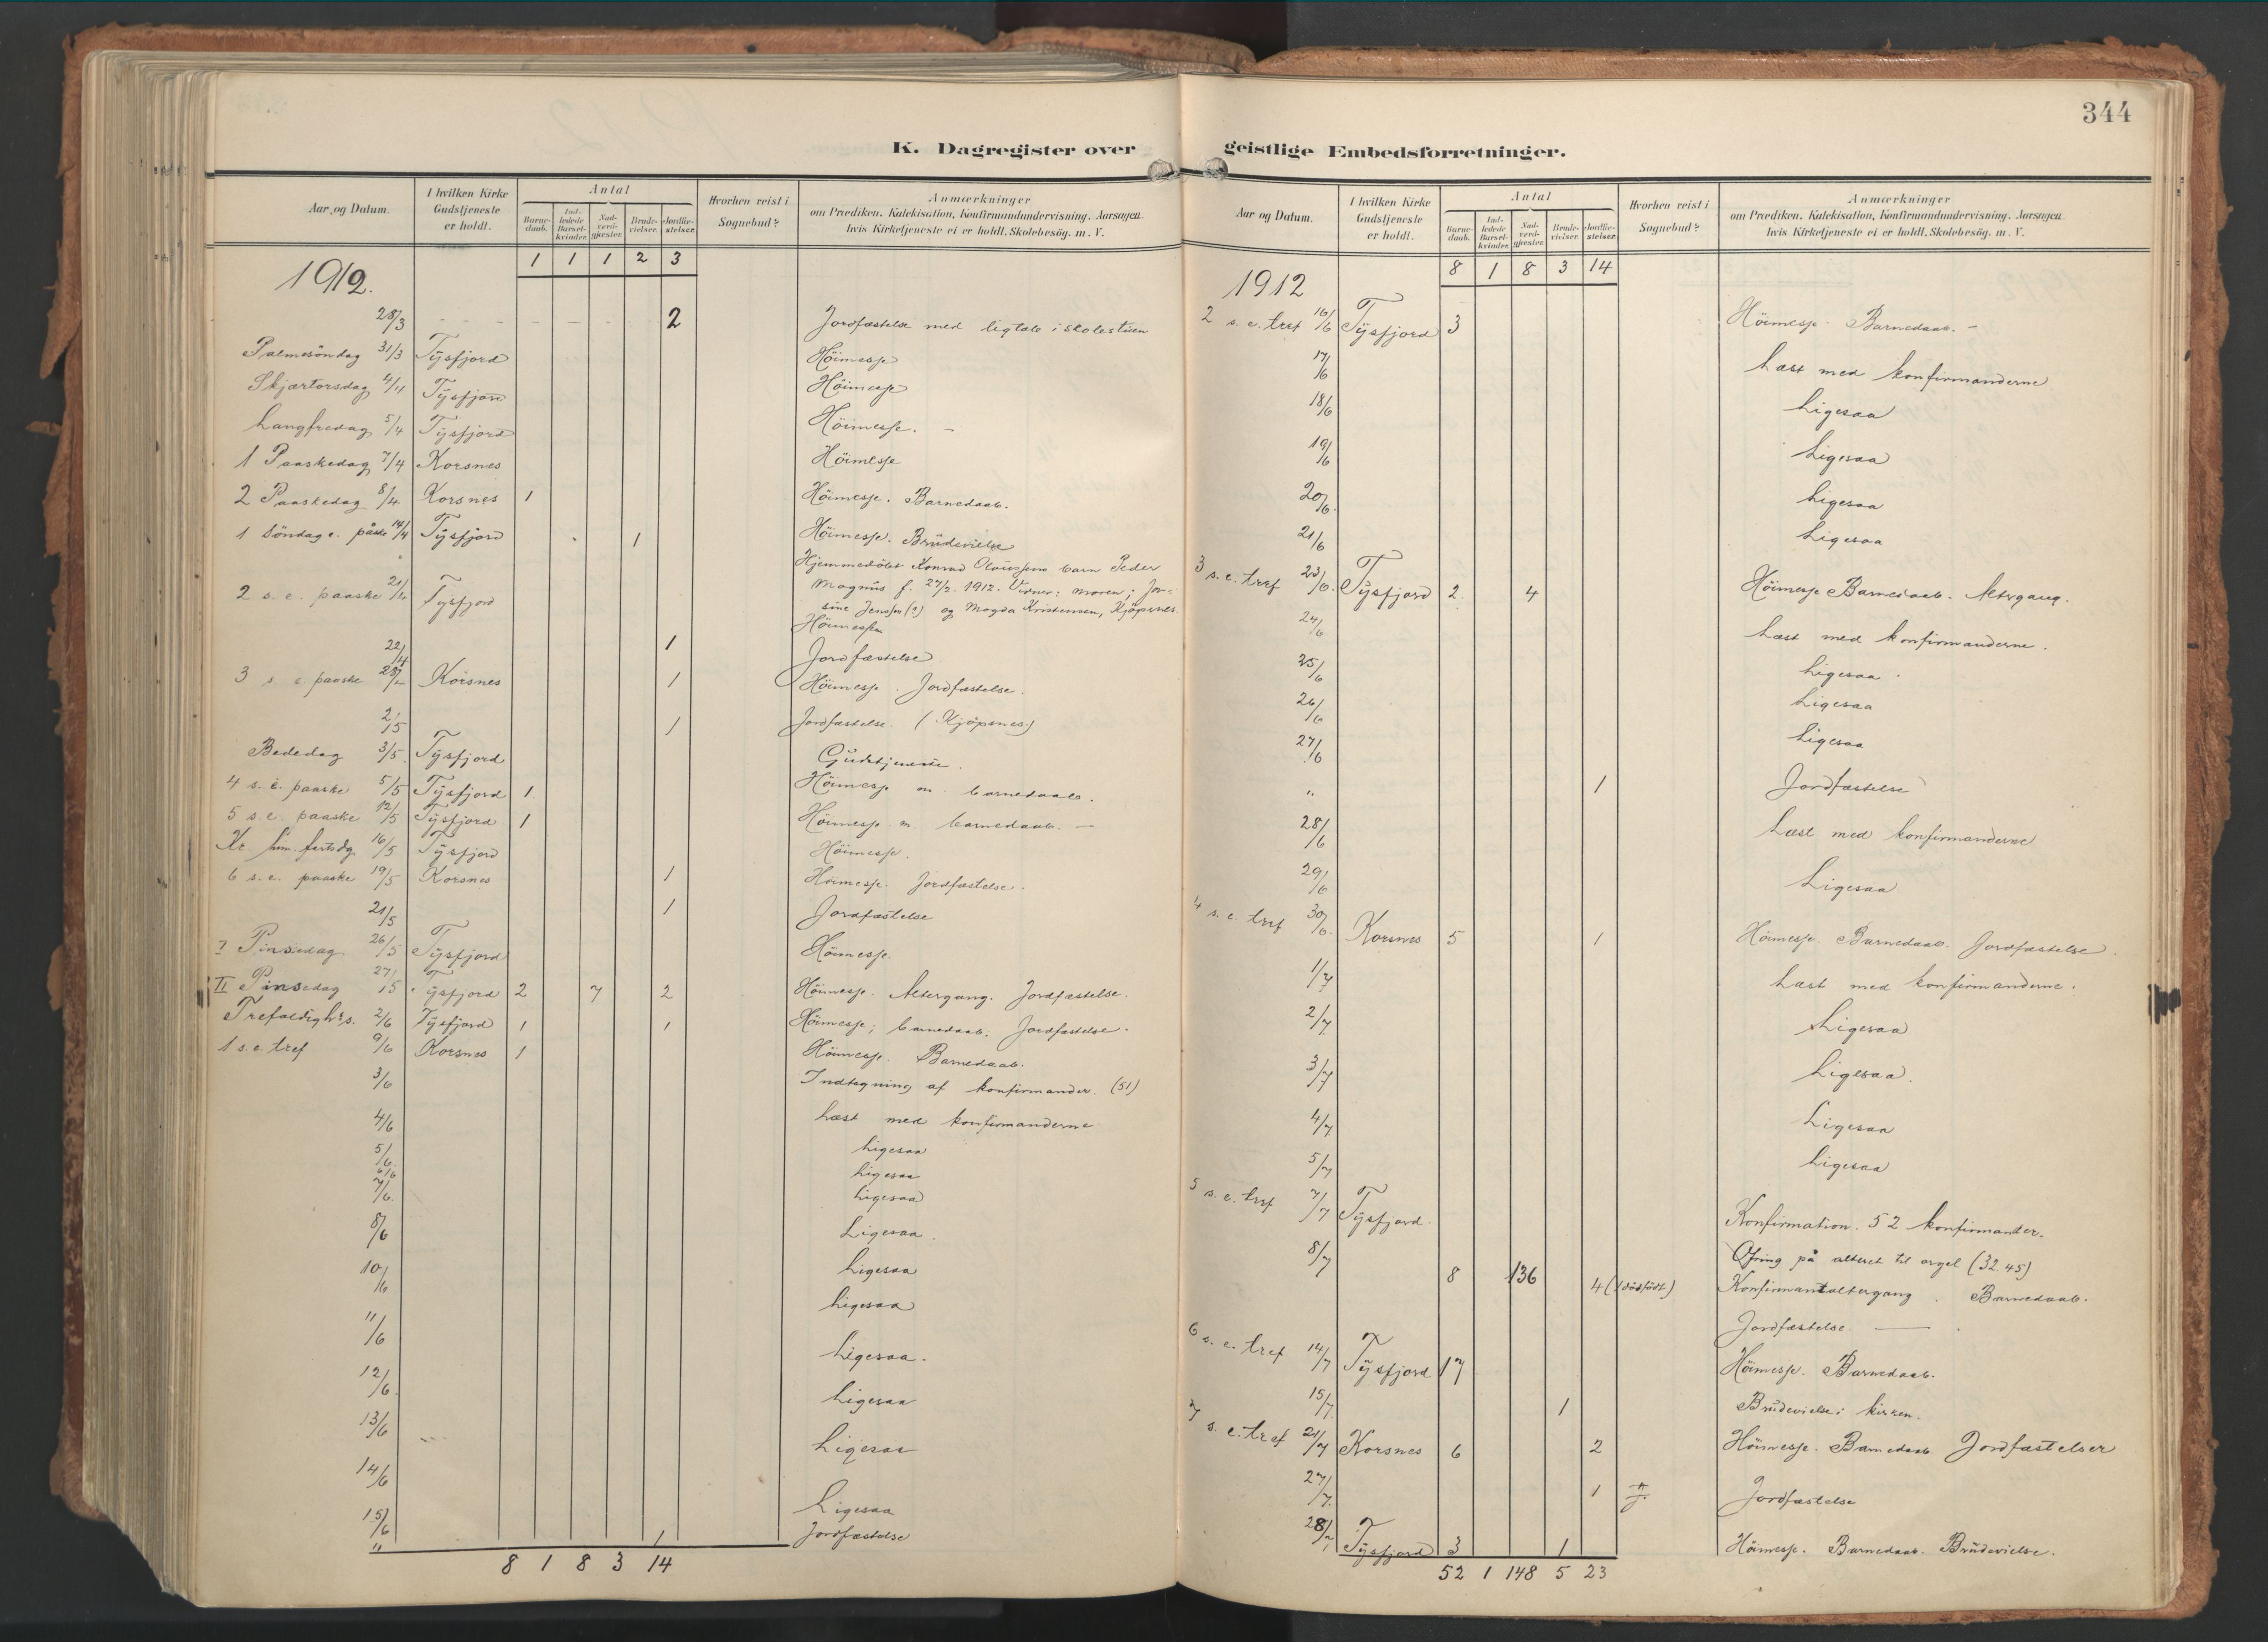 344
K. Dagregister over geistlige Embedsforretninger.
Aar og Datum. I hvilken Kirke Gudstjeneste er holdt. Antal Barnedaab. Indledede Barselkvinder. Nadverdgjæster. Brudevielser. Jordfæstelser. Hvorhen reist i Sognebud? Anmærkninger om Prædiken, Katekisation, Konfirmandundervisning, Aarsagen hvis Kirketjeneste ei er holdt, Skolebesög. m. V.
1 1 1 2 3
1912.
28/3 2 Jordfæstelse med ligtale i skolestuen
Palmesöndag 31/3 Tysfjord Höimesse
Skjærtorsdag 4/4 Tysfjord Höimesse
Langfredag 5/4 Tysfjord Höimesse. -
1 Paaskedag 7/4 Korsnes Höimesse
2 Paaskedag 8/4 Korsnes 1 Höimesse. Barnedaab.
1 Söndag e. påske 14/4 Tysfjord 1 Höimesse. Brudevielse
Hjemmedöbt Konrad Olaussens barn Peder
2 s. e. paaske 21/4 Tysfjord Magnus f. 27/2. 1912. Vidner: moren; Jo-
sine Jenssen (?) og Magda Kristensen, Kjöpsnes.
Höimesse
22/4 1 Jordfæstelse
3 s. e. paaske 28/4 Korsnes 1 Höimesse. Jordfæstelse.
2/5 1 Jordfæstelse. (Kjöpsnes.)
Bededag 3/5 Tysfjord Gudstjeneste.
4 s. e. paaske 5/5 Tysfjord 1 Höimesse m. barnedaab.
5 s. e. paaske 12/5 Tysfjord 1 Höimesse m. barnedaab. -
Kr. him. fartsdg 16/5 Tysfjord Höimesse.
6 s. e. paaske 19/5 Korsnes 1 Höimesse. Jordfæstelse.
21/5 1 Jordfæstelse
I Pinsedag 26/5 Tysfjord Höimesse.
II Pinsedag 27/5 Tysfjord 2 7 2 Höimesse. Altergang. Jordfæstelse.
Trefoldigh.s. 2/6 Tysfjord 1 1 Höimesse; barnedaab. Jordfæstelse.
1 s. e. tref 9/6 Korsnes 1 Höimesse. Barnedaab.
3/6 Indtegning af konfirmander. (51)
4/6 Læst med konfirmanderne
5/6 Ligesaa
6/6 Ligesaa
7/6. Ligesaa
8/6 Ligesaa.
10/6 Ligesaa
Ligesaa
11/6 Ligesaa.
12/6. Ligesaa
13/6 Ligesaa
14/6 Ligesaa
15/6
" 1 Jordfæstelse
8 1 8 3 14
Aar og Datum. I hvilken Kirke Gudstjeneste er holdt. Antal Barnedaab. Indledede Barselkvinder. Nadverdgjæster. Brudevielser. Jordfæstelser. Hvorhen reist i Sognebud? Anmærkninger om Prædiken, Katekisation, Konfirmandundervisning, Aarsagen hvis Kirketjeneste ei er holdt, Skolebesög. m. V.
8 1 8 3 14
1912
2 s. e. tref 16/6 Tysfjord 3 Höimesse. Barnedaab. -
17/6 Læst med konfirmanderne
18/6 Ligesaa
19/6 Ligesaa
20/6. Ligesaa
21/6 Ligesaa
3 s. e. tref 23/6. Tysfjord 2 4 Höimesse Barnedaab. Altergang.
24/6 Læst med konfirmanderne.
25/6 Ligesaa.
26/6 Ligesaa
27/6 Ligesaa
" 1 Jordfæstelse
28/6 Læst med konfirmanderne
29/6 Ligesaa
4 s. e. tref 30/6. Korsnes 5 1 Höimesse. Barnedaab. Jordfæstelse.
1/7 Læst med konfirmanderne.
2/7 Ligesaa
3/7 Ligesaa.
4/7 Ligesaa
5/7 Ligesaa
5 s. e. tref 7/7 Tysfjord. Konfirmation. 52 konfirmander.
Ofring på alteret til orgel (32.45)
8/7 8 136 4 (1 dödfödt) Konfirmantaltergang. Barnedaab.
Jordfæstelse. -
6 s. e. tref 14/7 Tysfjord 17 Höimesse. Barnedaab.
15/7. 1 Brudevielse i kirken.
7 s. e. tref 21/7 Korsnes 6 2 Höimesse. Barnedaab Jordfæstelser
27/7. 1 Jordfæstelse
28/7 Tysfjord 3 1 Höimesse. Barnedaab. Brudevielse.
52 1 148 5 23